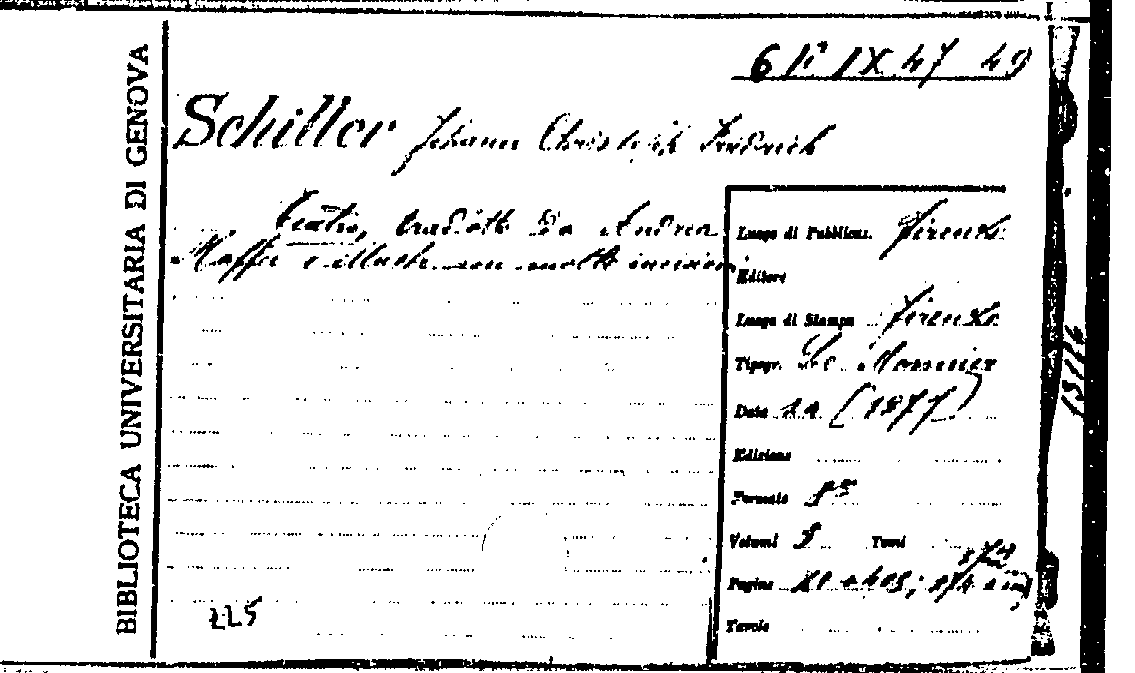 BIBLIOTECA UNIVERSITARIA DI GENOVA
6 F IX 47 49
Schiller Johann Christoph Friedrich
Teatro, tradotto da Andrea
Maffei e illustr. con molte incisioni
Luogo di Pubblicaz. Firenze
Editore
Luogo di Stampa Firenze
Tipogr. Le Monnier
Data (1877)
Edizione
Formato 8°
Volumi 3 Tomi
Pagine
Tavole
LLS